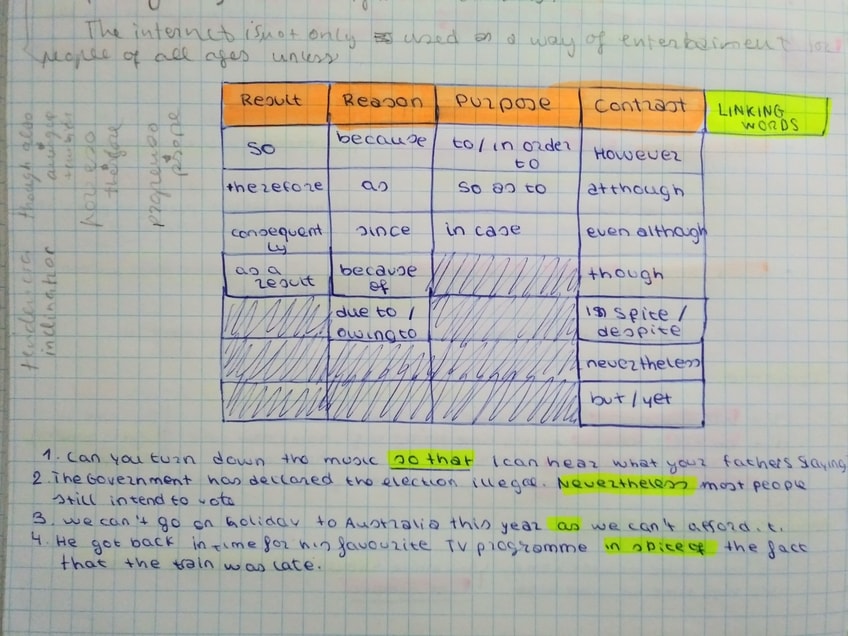 The internet is not only used as a way of entertaiment for
people of all ages unless
Result Reason Purpose Contrast LINKING WORDS
so because to / in order to However
therefore as so as to although
consequently since in case even although
as a result because of though
due to / owing to in spite / despite
nevertheless
but / yet
1. Can you turn down the music so that I can hear what your fathers saying
2. The Government has declared the election illegal. Nevertheless most people
still intend to vote
3. we can't go on holiday to Australia this year as we can't afford it.
4. He got back in time for his favourite TV programme in spite of the fact
that the train was late.